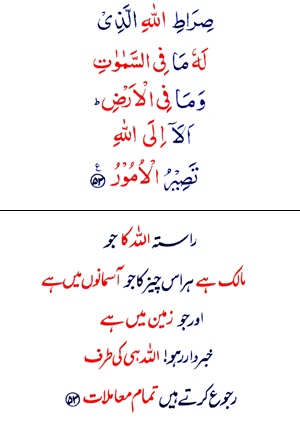 صِرَاطِ اللّٰهِ الَّذِیْ
لَهٗ مَا فِی السَّمٰوٰتِ
وَمَا فِی الْاَرْضِ ؕ
اَلَاۤ اِلَی اللّٰهِ
تَصِیْرُ الْاُمُوْرُ ﴿۵۳﴾ ع
راستہ اللہ کا جو
مالک ہے ہر اس چیز کا جو آسمانوں میں ہے
اور جو زمین میں ہے
خبردار رہو! اللہ ہی کی طرف
رجوع کرتے ہیں تمام معاملات ﴿۵۳﴾